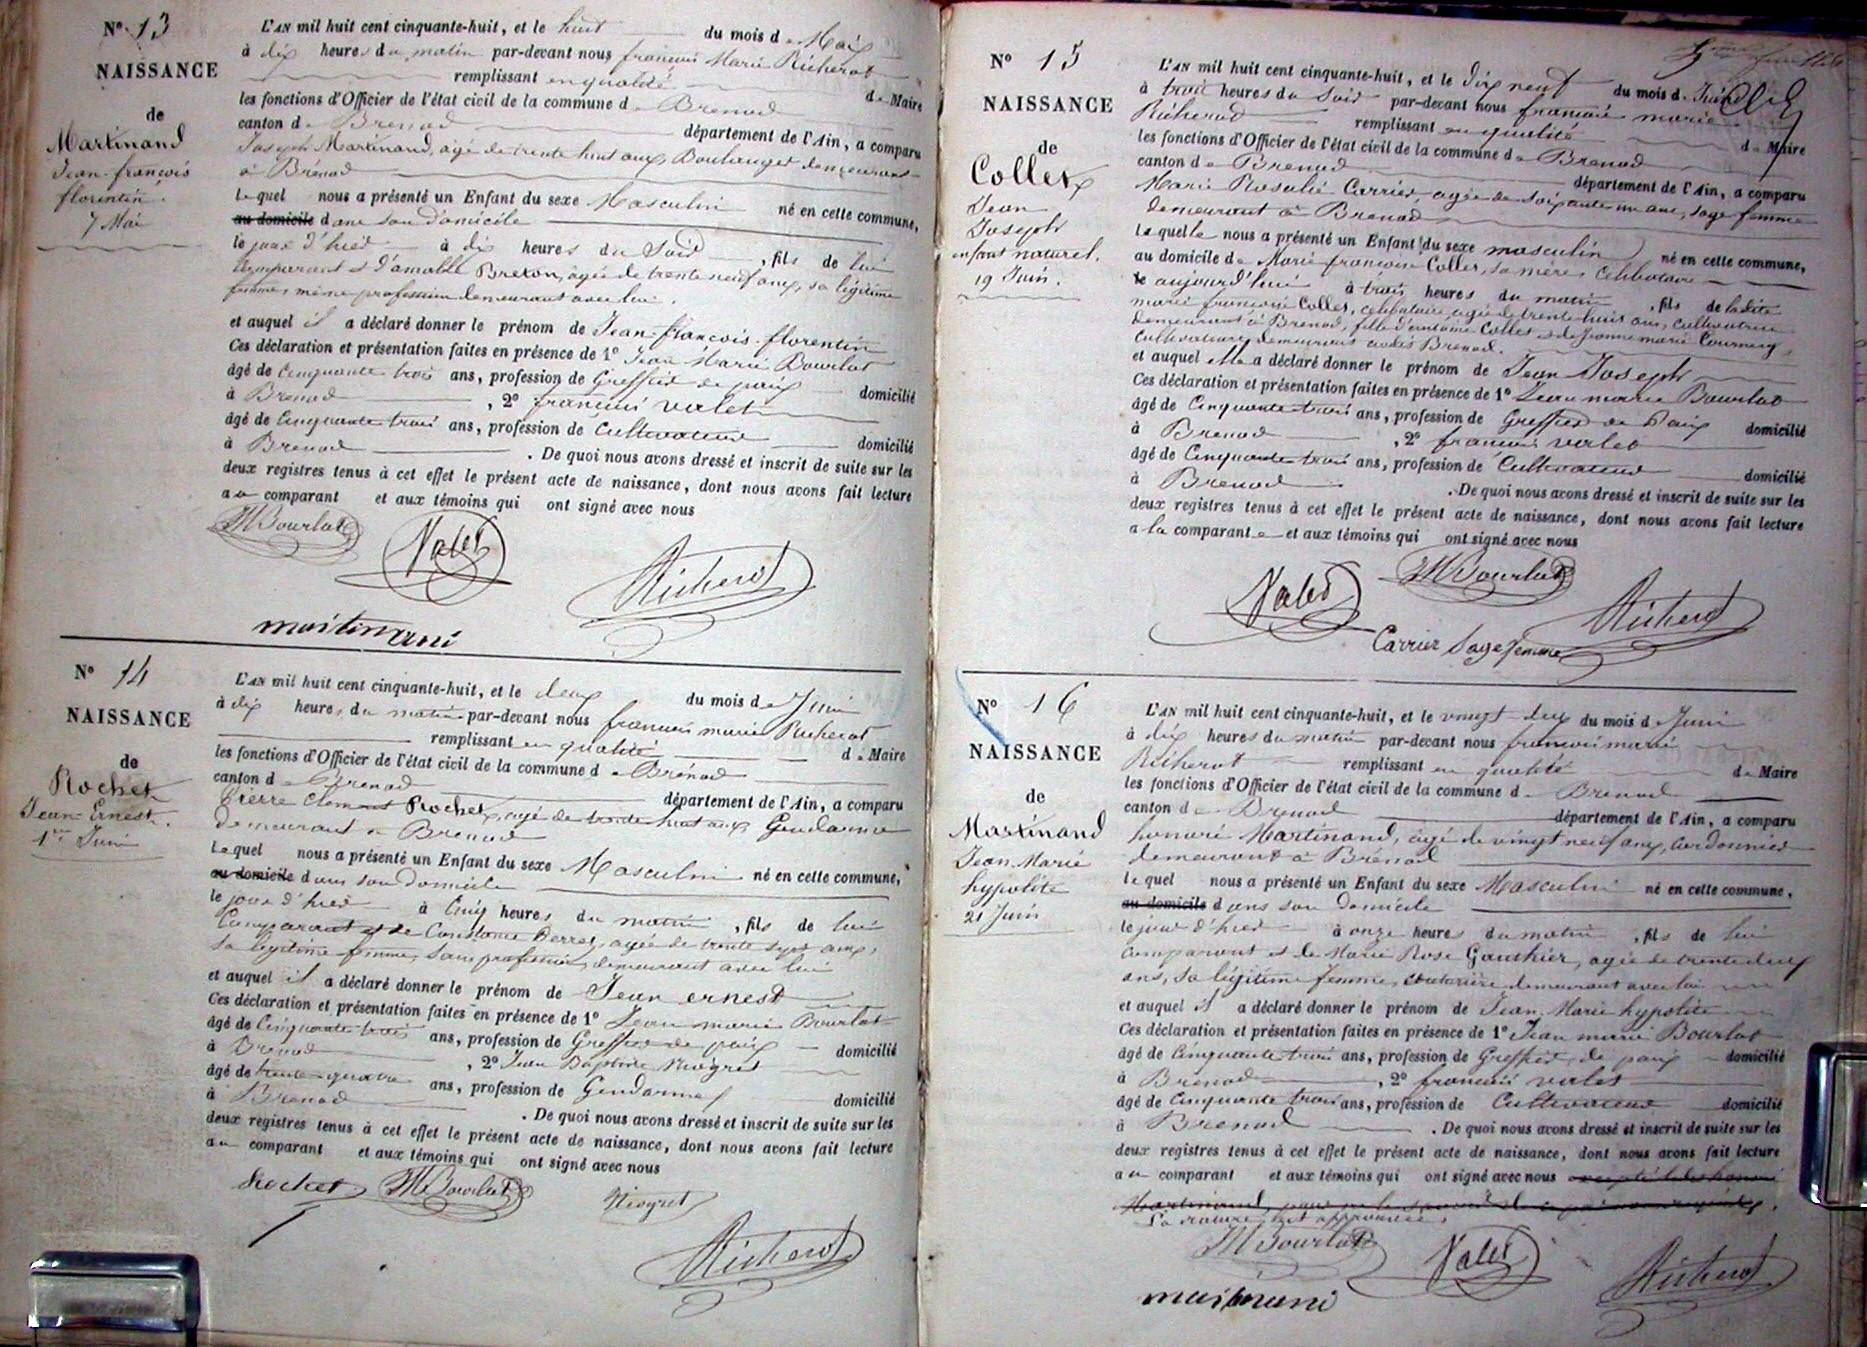 N° 13
NAISSANCE
de
Martinand
Jean-françois
florentin.
7 Mai
L'AN mil huit cent cinquante-huit, et le huit du mois de Mai
à dix heures du matin par-devant nous françois Marie Richerot
remplissant en qualité de Maire
les fonctions d'Officier de l'état civil de la commune de Brenod
canton de Brenod département de l'Ain, a comparu
Joseph Martinand, âgé de trente huit ans, Boulanger demeurant
à Brénod
Lequel nous a présenté un Enfant du sexe Masculin né en cette commune,
au domicile dans son domicile
le jour d'hier à dix heures du Soir, fils de lui
Comparant et d'amable Breton, âgée de trente neuf ans, sa légitime
femme, même profession demeurant avec lui.
et auquel il a déclaré donner le prénom de Jean-françois-florentin
Ces déclaration et présentation faites en présence de 1° Jean Marie Bourlot
âgé de Cinquante trois ans, profession de Greffier de paix domicilié
à Brenod, 2° françois valet
âgé de Cinquante trois ans, profession de Cultivateur domicilié
à Brenod. De quoi nous avons dressé et inscrit de suite sur les
deux registres tenus à cet effet le présent acte de naissance, dont nous avons fait lecture
au comparant et aux témoins qui ont signé avec nous
JM Bourlot
Valet
Richerot
N° 14
NAISSANCE
de
Rochet
Jean-Ernest.
1er Juin
L'AN mil huit cent cinquante-huit, et le deux du mois de Juin
à dix heures du matin par-devant nous françois marie Richerot
remplissant en qualité de Maire
les fonctions d'Officier de l'état civil de la commune de Brénod
canton de Brenod département de l'Ain, a comparu
Pierre Clement Rochet, agé de trente huit ans, Gendarme
demeurant a Brenod
Lequel nous a présenté un Enfant du sexe Masculin né en cette commune,
au domicile dans son domicile
le jour d'hier à Cinq heures du matin, fils de lui
Comparant et de Constance Berret, agée de trente sept ans,
sa legitime femme, sans profession, demeurant avec lui
et auquel il a déclaré donner le prénom de Jean ernest
Ces déclaration et présentation faites en présence de 1° Jean marie Bourlot
âgé de Cinquante trois ans, profession de Greffier de paix domicilié
à Brenod, 2° Jean Baptiste Niogret
âgé de trente-quatre ans, profession de Gendarme domicilié
à Brenod. De quoi nous avons dressé et inscrit de suite sur les
deux registres tenus à cet effet le présent acte de naissance, dont nous avons fait lecture
au comparant et aux témoins qui ont signé avec nous
Rochet JM Bourlot Niogret
Richerot
N° 15
NAISSANCE
de
Collet
Jean
Joseph
enfant naturel.
19 Juin.
L'AN mil huit cent cinquante-huit, et le dix neuf du mois de Juin
à trois heures du Soir par-devant nous françois marie
Richerot remplissant en qualité de Maire
les fonctions d'Officier de l'état civil de la commune de Brenod
canton de Brenod département de l'Ain, a comparu
Marie Rosalie Carrier, agée de Soixante un ans, sage femme
demeurant à Brenod
Laquelle nous a présenté un Enfant du sexe masculin né en cette commune,
au domicile de Marie françoise Collet, sa mère, Celibataire
le aujourd'hui à trois heures du matin, fils de la dite
marie françoise Collet, celibataire, agée de trente huit ans, cultivatrice
demeurant à Brenod, fille d'antoine Collet et de Jeanne marie
Cultivateurs demeurant audit Brenod.
et auquel elle a déclaré donner le prénom de Jean Joseph
Ces déclaration et présentation faites en présence de 1° Jean marie Bourlot
âgé de Cinquante trois ans, profession de Greffier de Paix domicilié
à Brenod, 2° françois valet
âgé de Cinquante trois ans, profession de Cultivateur domicilié
à Brenod. De quoi nous avons dressé et inscrit de suite sur les
deux registres tenus à cet effet le présent acte de naissance, dont nous avons fait lecture
a la comparante et aux témoins qui ont signé avec nous
Valet JM Bourlot
Richerot
Carrier Sage femme
N° 16
NAISSANCE
de
Martinand
Jean Marie
hypolite
21 Juin
L'AN mil huit cent cinquante-huit, et le vingt deux du mois de Juin
à dix heures du matin par-devant nous françois marie
Richerot remplissant en qualité de Maire
les fonctions d'Officier de l'état civil de la commune de Brenod
canton de Brenod département de l'Ain, a comparu
honoré Martinand, agé de vingt neuf ans, Cordonnier
demeurant à Brénod
Lequel nous a présenté un Enfant du sexe Masculin né en cette commune,
au domicile dans son domicile
le jour d'hier à onze heures du matin, fils de lui
comparant et de Marie Rose Gauthier, agée de trente deux
ans, sa légitime femme, couturière demeurant avec lui
et auquel il a déclaré donner le prénom de Jean Marie hypolite
Ces déclaration et présentation faites en présence de 1° Jean marie Bourlot
âgé de Cinquante trois ans, profession de Greffier de paix domicilié
à Brenod, 2° françois valet
âgé de Cinquante trois ans, profession de Cultivateur domicilié
à Brenod. De quoi nous avons dressé et inscrit de suite sur les
deux registres tenus à cet effet le présent acte de naissance, dont nous avons fait lecture
au comparant et aux témoins qui ont signé avec nous
La rature est approuvée.
JM Bourlot
Valet
Richerot